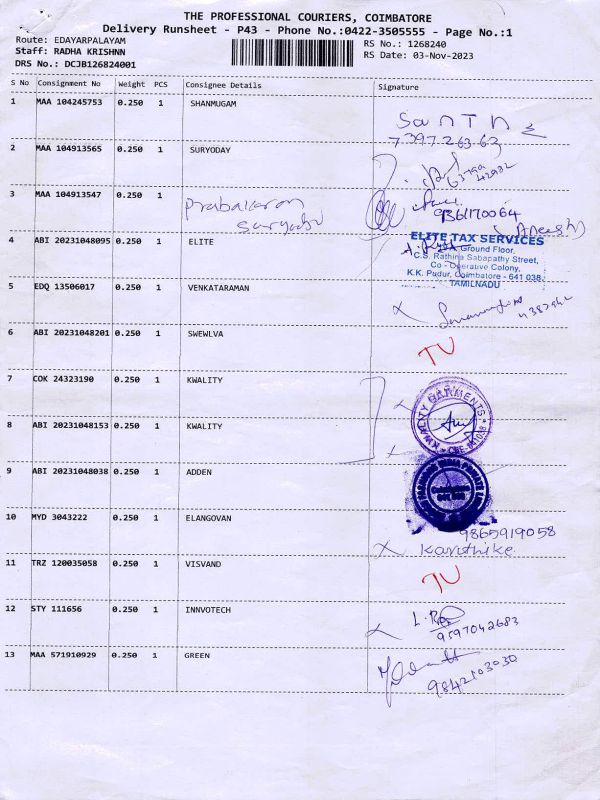 THE PROFESSIONAL COURIERS, COIMBATORE
Delivery Runsheet - P43 - Phone No.:0422-3505555 - Page No.:1
Route: EDAYARPALAYAM
RS No.: 1268240
Staff: RADHA KRISHNN
RS Date: 03-Nov-2023
DRS No.: DCJB126824001
S No Consignment No Weight PCS Consignee Details Signature
1 MAA 104245753 0.250 1 SHANMUGAM
2 MAA 104913565 0.250 1 SURYODAY
3 MAA 104913547 0.250 1 Prabakaran
9361170064
4 ABI 20231048095 0.250 1 ELITE
ELITE TAX SERVICES
Ground Floor,
C.S. Rathina Sabapathy Street,
Co - Operative Colony,
K.K. Pudur, Coimbatore - 641 038
TAMILNADU
5 EDQ 13506017 0.250 1 VENKATARAMAN
6 ABI 20231048201 0.250 1 SWEWLVA
7 COK 24323190 0.250 1 KWALITY
KWALITY GARMENTS
8 ABI 20231048153 0.250 1 KWALITY
9 ABI 20231048038 0.250 1 ADDEN
10 MYD 3043222 0.250 1 ELANGOVAN
9865919058
Karithike
11 TRZ 120035058 0.250 1 VISVAND
12 STY 111656 0.250 1 INNVOTECH
9597042683
13 MAA 571910929 0.250 1 GREEN
9842103030